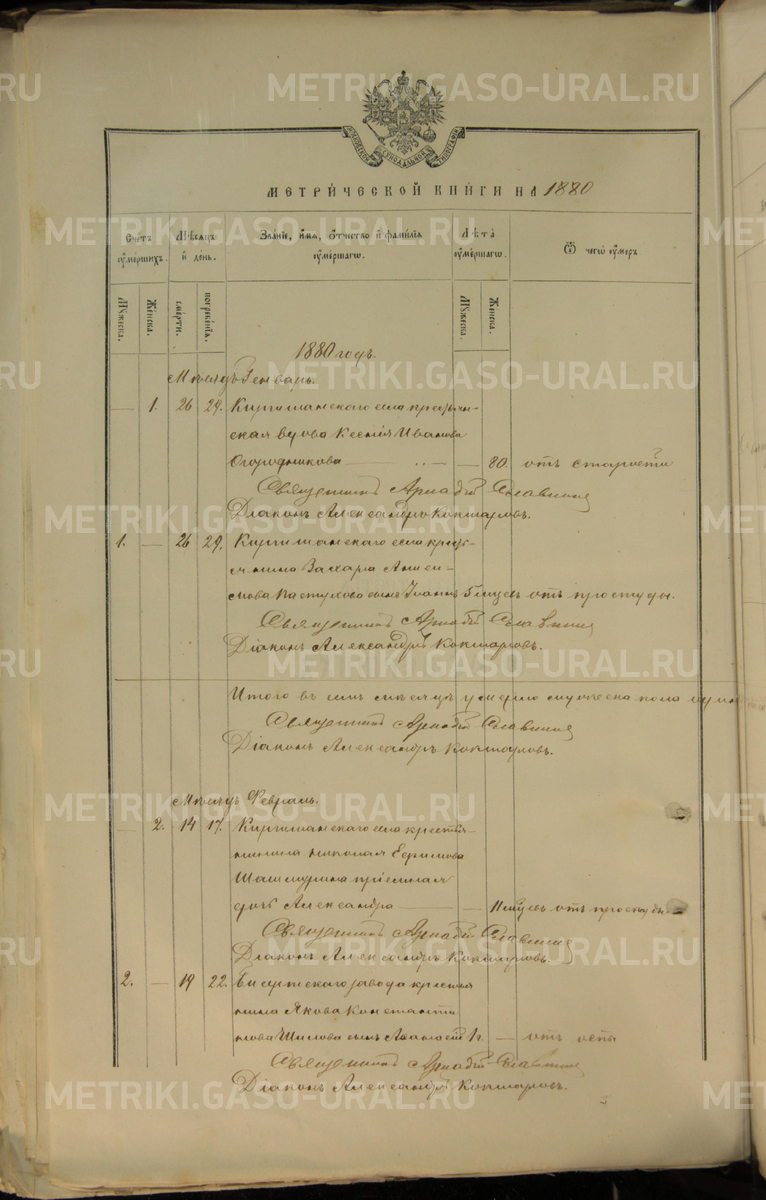 METRIKI.GASO-URAL.RU
МОСКОВСКОЙ СѴНОДАЛЬНОЙ ТИПОГРАФІИ
МЕТРИ́ЧЕСКОЙ КНИ́ГИ НА 1880
Счетъ ᲂу҆ме́ршихъ.
Мѣсяцъ и҆ де́нь.
Зва́нїе, и҆́мѧ, ѻ҆́тчество и҆ фами́лїѧ ᲂу҆ме́ршагѡ.
Лѣ́та ᲂу҆ме́ршагѡ.
Ѿ чегѡ̀ ᲂу҆́меръ.
Мꙋ́жеска.
Же́нска.
сме́рти.
погребе́нїѧ.
Мꙋ́жеска.
Же́нска.
1880 годъ.
Мѣсяцъ Генварь.
— 1. 26 29. Киргишанскаго села крестьян-
ская вдова Ксенія Иванова
Огородникова — — 80. отъ старости
Священникъ Аркадій Славнинъ
Діаконъ Александръ Кокшаровъ.
1. — 26 29. Киргишанскаго села кресть-
янина Захара Аниси-
мова Пастухова сынъ Іоаннъ 5 мѣсец. отъ простуды.
Священникъ Аркадій Славнинъ
Діаконъ Александръ Кокшаровъ.
Итого въ семъ мѣсяцѣ умерло мужеска пола
Священникъ Аркадій Славнинъ
Діаконъ Александръ Кокшаровъ.
Мѣсяцъ Февраль.
— 2. 14 17. Киргишанскаго села крестья-
нина Николая Ефимова
Шашмурина пріемная
дочь Александра — — 11 мѣсец. отъ простуды.
Священникъ Аркадій Славнинъ
Діаконъ Александръ Кокшаровъ.
2. — 19 22. Бисертскаго завода крестья
нина Якова Константи
нова Шилова сынъ Аѳанасій 1 г. — отъ оспы
Священникъ Аркадій Славнинъ
Діаконъ Александръ Кокшаровъ.